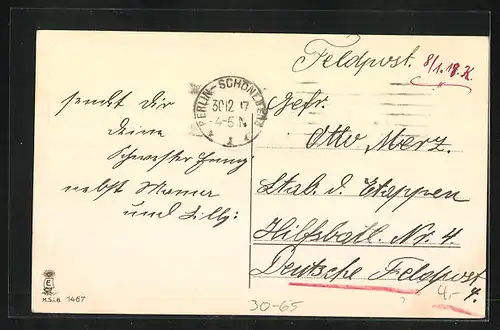 Feldpost. 8/1.18. K.
BERLIN-SCHÖNEBERG
30.12.17
4-5 N
1
sendet Dir
Deine
Schwester
nebst Mama
und Lilly.
Gefr.
Otto Merz.
Stab. d. Etappen
Hilfsbatl. Nr. 4.
Deutsche Feldpost
4.
4.-
30-65
E
M.S.i.B. 1467